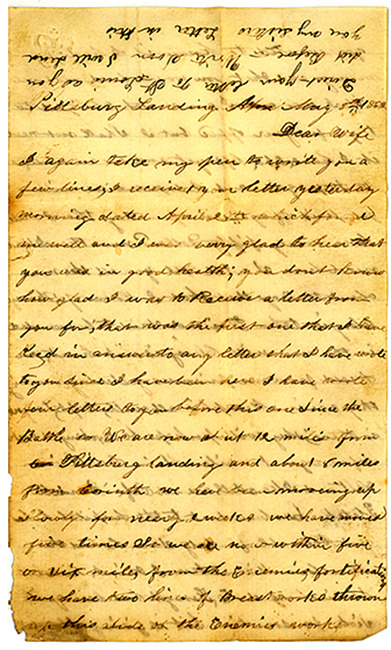 Direct your letter to St Louis as you
did Before Write soon I will send
you my sisters Letter in this
Pittsburg Landing May 8th 1862
Dear Wife
I again take my pen to write you a
few lines; I received your letter yesterday
morning dated April 25th which found
me well and I was very glad to hear that
you was in good health; you dont know
how glad I was to Receive a letter from
you for; that was the first one that I have
Recd in answer to any letter that I have wrote
to you since I have been here I have wrote
four letters to you before this one Since the
Battle We are now about 12 miles from
Pittsburg landing and about 8 miles
from Corinth we have been moving up
slowly for neary 2 weeks we have moved
five times So we are now within five
or six miles from the Enemies fortificat
we have two lines of Breast works thrown
up this side of the Enemies works